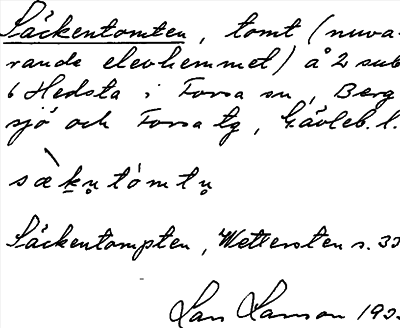 Säckentomten, tomt (nuva-
rande elevhemmet) å 2 sub
6 Hedsta i Forsa sn, Berg
sjö och Forsa tg, Gävleb. l.
Säckentompten, Wettersten s. 33
Lars Larson 193